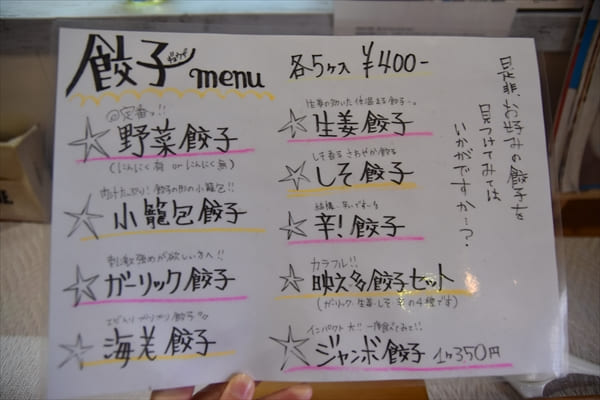 餃子 ギョウザ menu
各5ヶ入 ¥400-
定番っ!!
☆野菜餃子
(にんにく有 or にんにく無)
肉汁たっぷり!餃子の形の小籠包!!
☆小籠包餃子
刺激強めが欲しい方へ!!
☆ガーリック餃子
☆海老餃子
生姜の効いた体温まる餃子…。
☆生姜餃子
しそ香る さわやか餃子
☆しそ餃子
結構、辛いです…
☆辛!餃子
カラフル!!
☆映え多餃子セット
(ガーリック・生姜・しそ 辛の4種です)
インパクト大!!一度食べてみて!!
☆ジャンボ餃子 1ヶ350円
是非、お好みの餃子を
見つけてみては
いかがですか…?